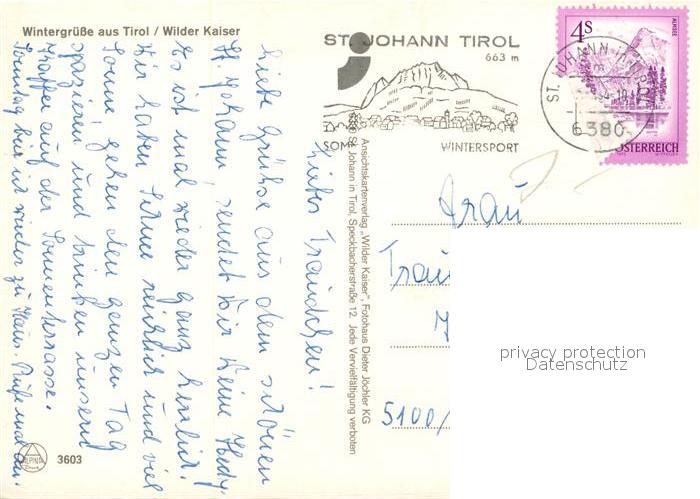 Wintergrüße aus Tirol / Wilder Kaiser
ST. JOHANN TIROL
663 m
WINTERSPORT
4S
ALMSEE
ST. JOHANN
6380
ÖSTERREICH
Liebes Traudchen!
Liebe Grüße aus dem schönen
St. Johann, sendet Dir Deine Hedy.
Es ist mal wieder ganz herrlich.
Wir haben Schnee reichlich und viel
Sonne, gehen den ganzen Tag
spazieren und trinken unseren
Kaffee auf der Sonnenterrasse.
Sonntag sind wir wieder zu Haus. Rufe mal an.
Ansichtskartenverlag „Wilder Kaiser", Fotohaus Dieter Jöchler KG
6380 St. Johann in Tirol, Speckbacherstraße 12. Jede Vervielfältigung verboten
Frau
5100/
privacy protection
Datenschutz
ALPINA
3603